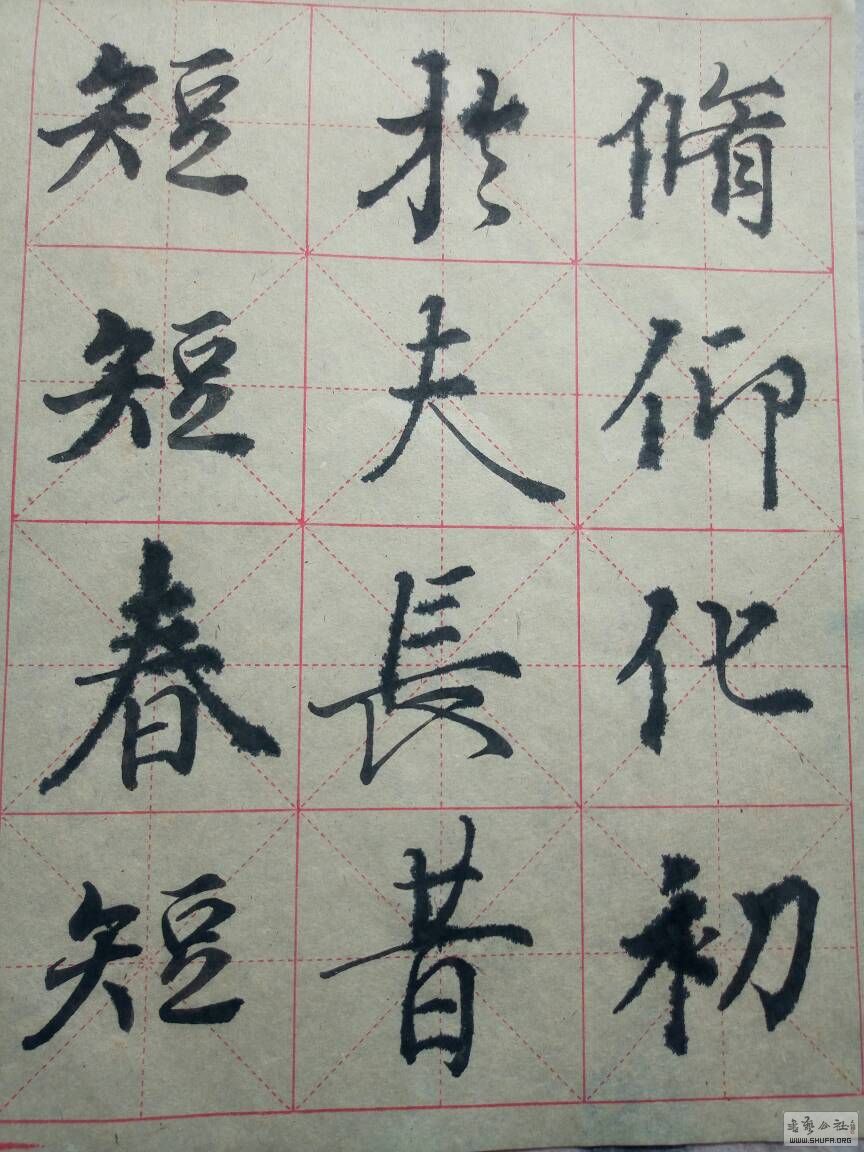 脩仰化初
於夫長昔
短短春短
書藝公社
WWW.SHUFA.ORG